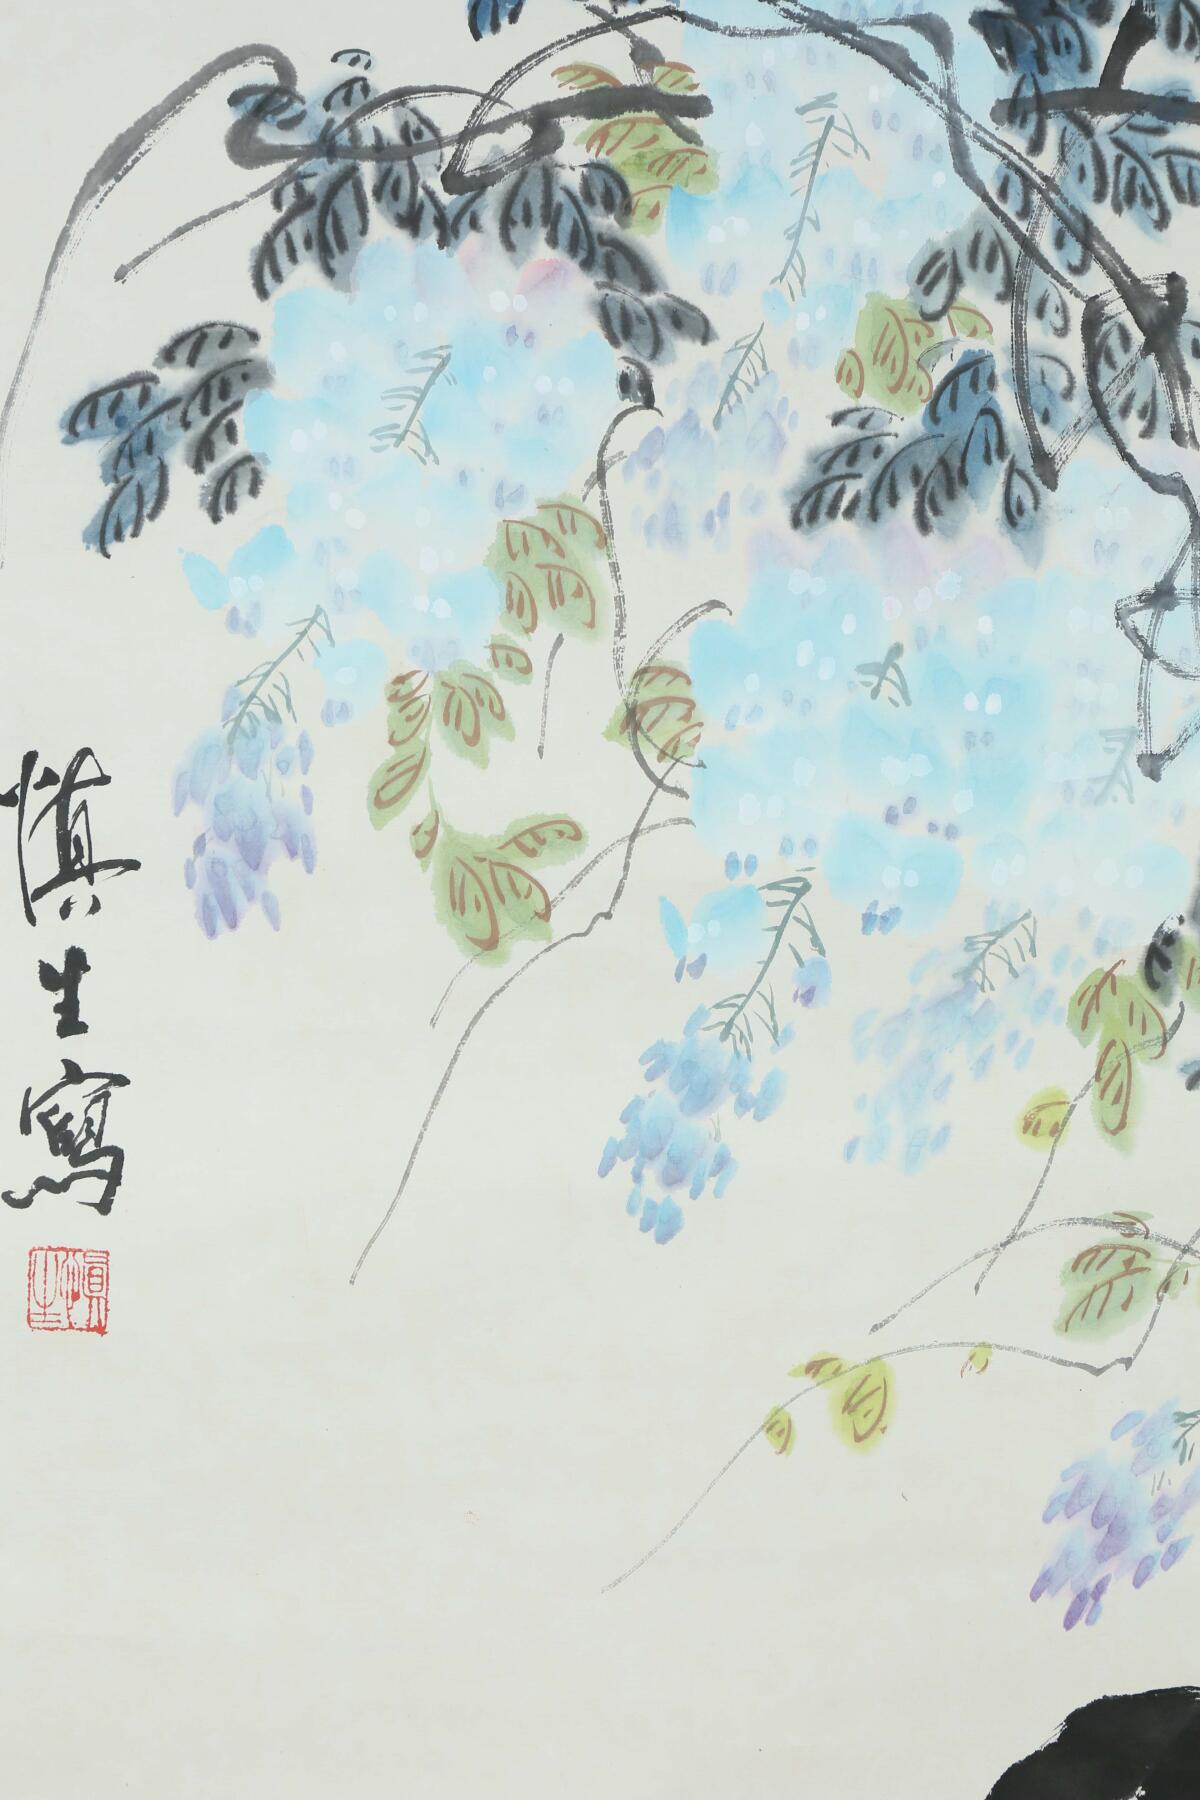 慎生寫
慎生